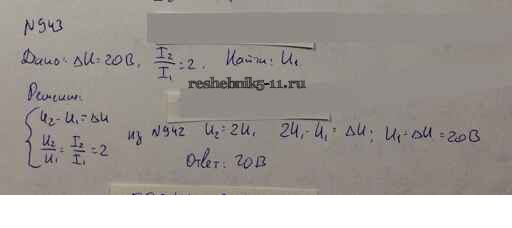 N943
Дано: ΔU=20В, I₂/I₁=2. Найти: U₁
reshebnik5-11.ru
Решение:
{ U₂-U₁=ΔU
U₂/U₁=I₂/I₁=2
из N942 U₂=2U₁ 2U₁-U₁=ΔU; U₁=ΔU=20В
Ответ: 20В